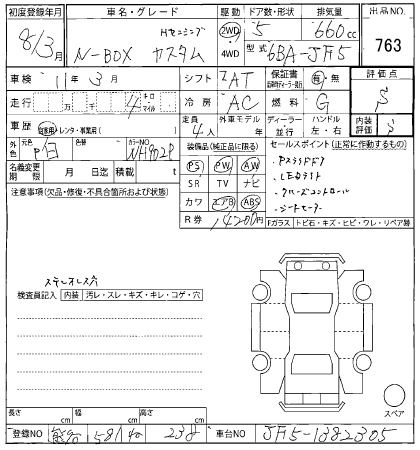 初度登録年月 車名・グレード 駆動 ドア数・形状 排気量 出品NO.
8/3月 N-BOX カスタム 2WD 4WD 5 660cc 763
型式 6BA-JF5
車検 1年3月 シフト AT 保証書 有・無 評価点
走行 万 千 4 キロ マイル 冷房 AC 燃料 G S
車歴 自家用・レンタ・事業用( ) 定員 4人 外車モデル 年 ディーラー 並行 ハンドル 左・右 内装評価 S
外色 元色 白 色替 カラーNO NH902P 装備品(純正品に限る) セールスポイント(正常に作動するもの)
名義変更期限 月 日迄 積載 t PS PW AW
注意事項(欠品・修復・不具合箇所および状態) SR TV ナビ LEDライト
カワ エアB ABS クルーズコントロール
R券 14200円 シートヒーター
Fガラス トビ石・キズ・ヒビ・ワレ・リペア跡
ステレオレス穴
検査員記入 内装 汚レ・スレ・キズ・キレ・コゲ・穴
スペア
長さ cm 幅 cm 高さ cm
登録NO 581 238 車台NO JF5-1382305